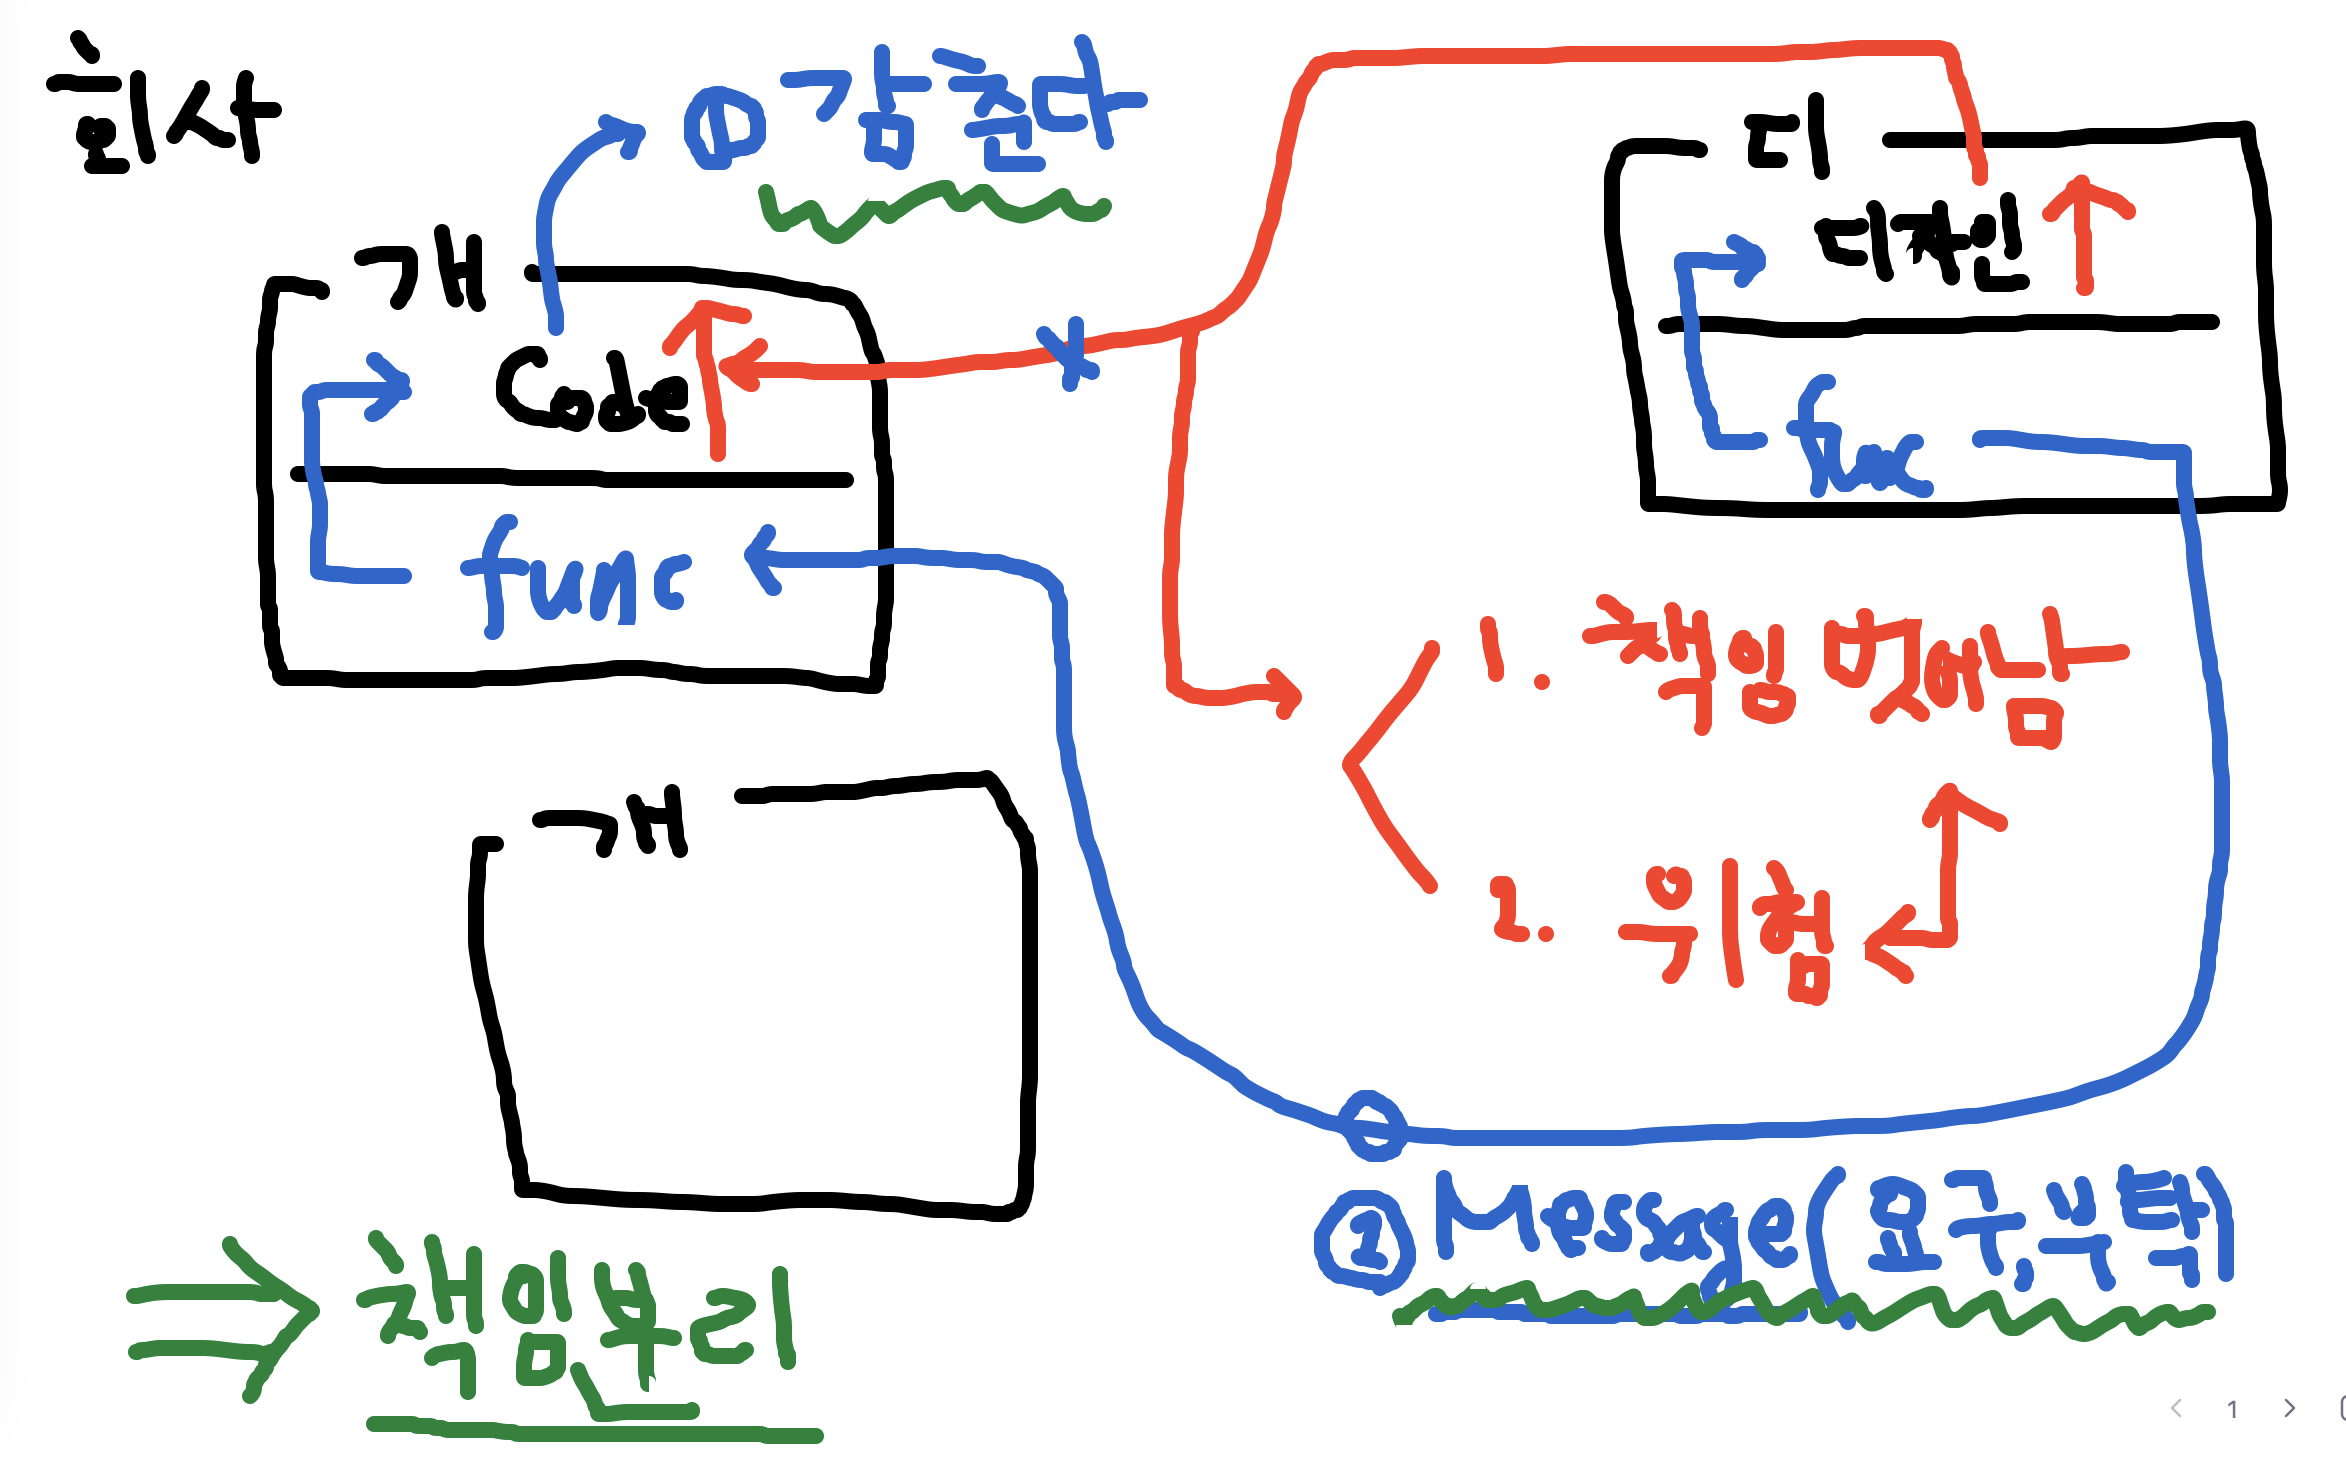 회사
① 감춘다
개
Code
func
디
디자인
func
1. 책임 몇에남
2. 위험
개
② Message (요구, 부탁)
⇒ 책임분리
1